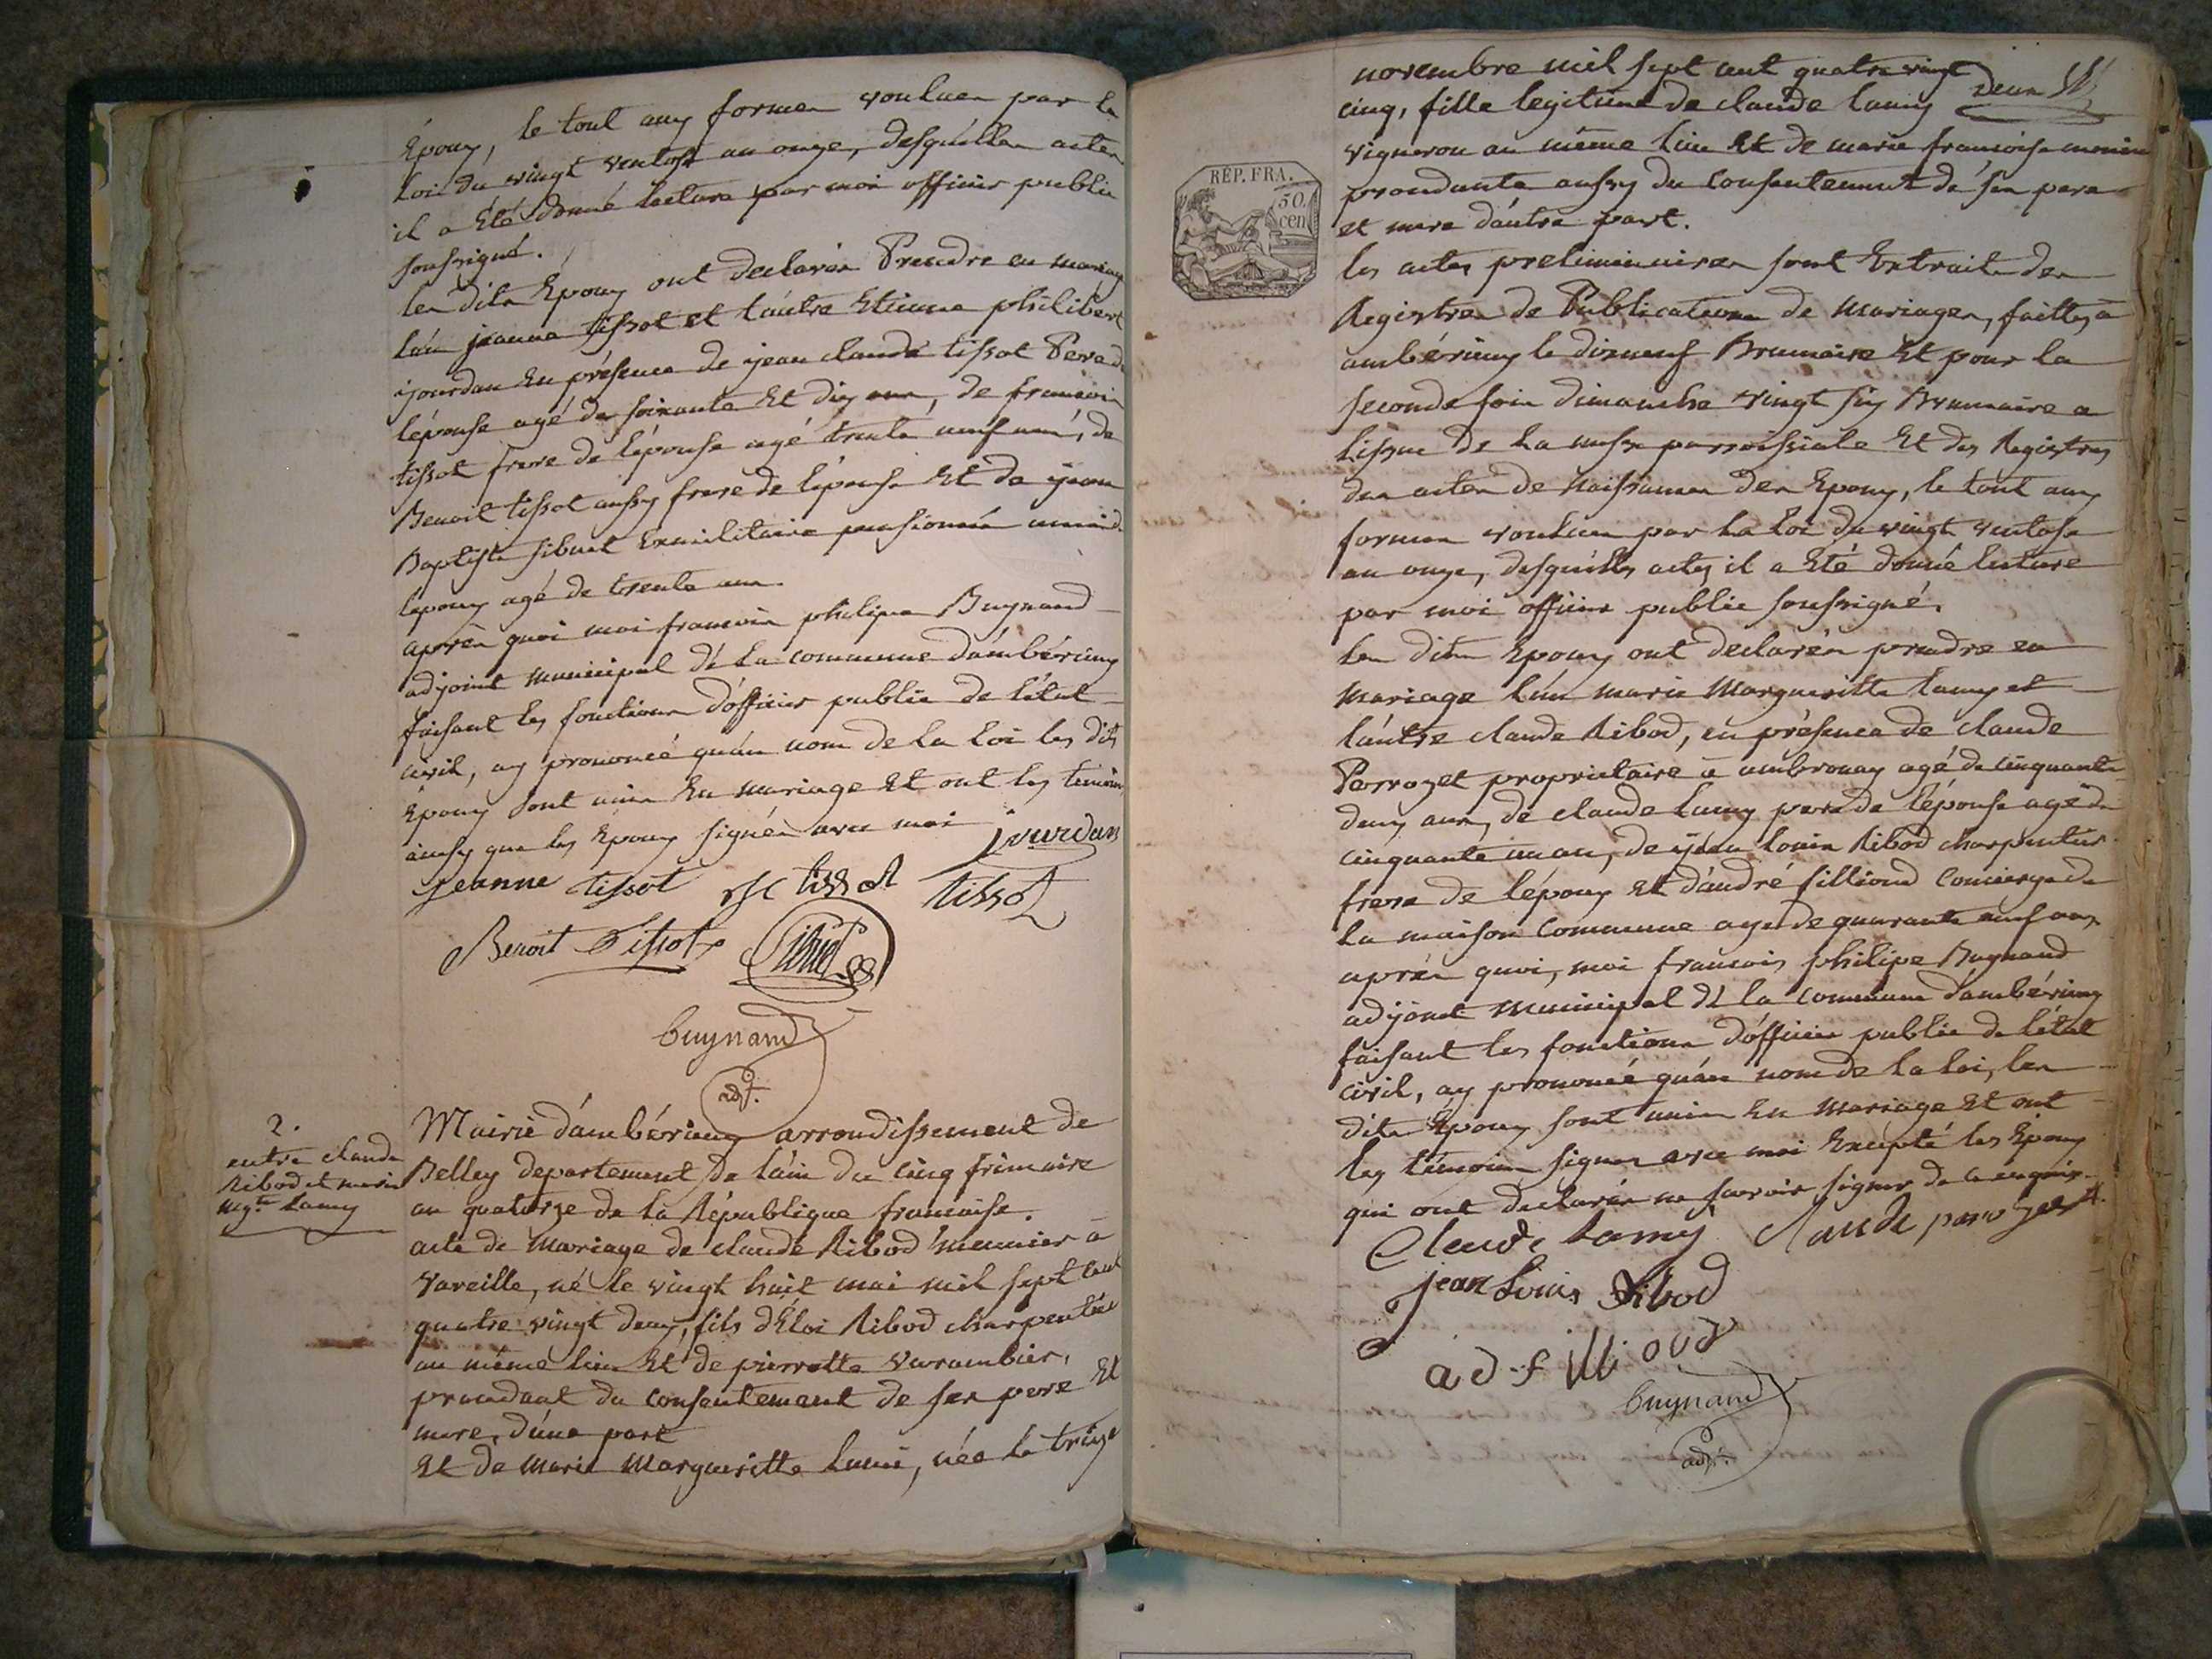 Époux, le tout aux formes voulues par la
loi du vingt ventose an onze, desquelles actes
il a Été donné lecture par moi officier public
soussigné.
les dits Epoux ont declarés Prendre en mariage
l'un jeanne tissot et l'autre Etienne philibert
jourdan En présence de jean claude tissot Pere de
l'épouse agé de soixante Et dix ans, de francois
tissot frere de l'épouse agé trente neuf ans, de
Benoit tissot aussy frere de l'épouse Et de jean
Baptiste sibuet Exmilitaire pensionné ami de
l'epoux agé de trente ans.
après quoi moi francois philipe Buynand
adjoint municipal dé la commune d'ambérieux
faisant les fonctions d'officier public de l'état
civil, ay prononcé qu'au nom de la loi les dits
Époux sont unis En mariage Et ont les temoins
ainsy que les Epoux signés avec moi jourdan
jeanne tissot JC tissot tissot
Benoit Tissot Sibuet
buynand
adjt.
2.
entre claude
Ribod et marie
mgte Lamy
Mairie d'ambérieux arrondissement de
Belley departement de l'ain du cinq frimaire
an quatorze de la République francaise.
acte de Mariage de claude Ribod meunier a
Vareille, né le vingt huit mai mil sept cent
quatre vingt deux, fils d'Eloi Ribod charpentier
au même lieu Et de pierrette Varambier,
procedant du consentement de ses pere Et
mere, d'une part
Et de Marie Margueritte Lami, née le treize
novembre mil sept cent quatre vingt
cinq, fille legitime de claude Lamy
vigneron au même lieu Et de marie francoise monin
procedante aussy du consentement de ses pere
et mere d'autre part.
RÉP. FRA.
50.
cen
les actes preliminaires sont Extraits des
Registres de Publications de Mariages, faittes à
ambérieux le dixneuf Brumaire Et pour la
seconde fois dimanche vingt six Brumaire a
l'issue de la messe parroissiale Et des Registres
des actes de Naissances des Epoux, le tout aux
formes voulues par la loi du vingt ventose
an onze, desquelles actes il a Été donné lecture
par moi officier public soussigné.
les dits Epoux ont declarés prendre en
Mariage l'un marie Margueritte Lamy et
l'autre claude Ribod, en présence de claude
Perrozet proprietaire à ambronay agé de cinquante
deux ans, de claude Lamy pere de l'épouse agé de
cinquante un an, de jean louis Ribod charpentier
frere de l'époux Et d'andré filliond Concierge de
la maison Commune agé de quarante neuf ans,
après quoi, moi francois philipe Buynand
adjoint Municipal dE la commune d'ambérieux
faisant les fonctions d'officier public de l'état
civil, ay prononcé qu'au nom de la loi, les
dits Époux sont unis En Mariage Et ont
les témoins signés avec moi Excepté les Epoux
qui ont declarés ne savoir signer de ce enquis.
Claude Lamy claude perrozet
jean Louis Ribod
ad filliod
buynand
adjt.